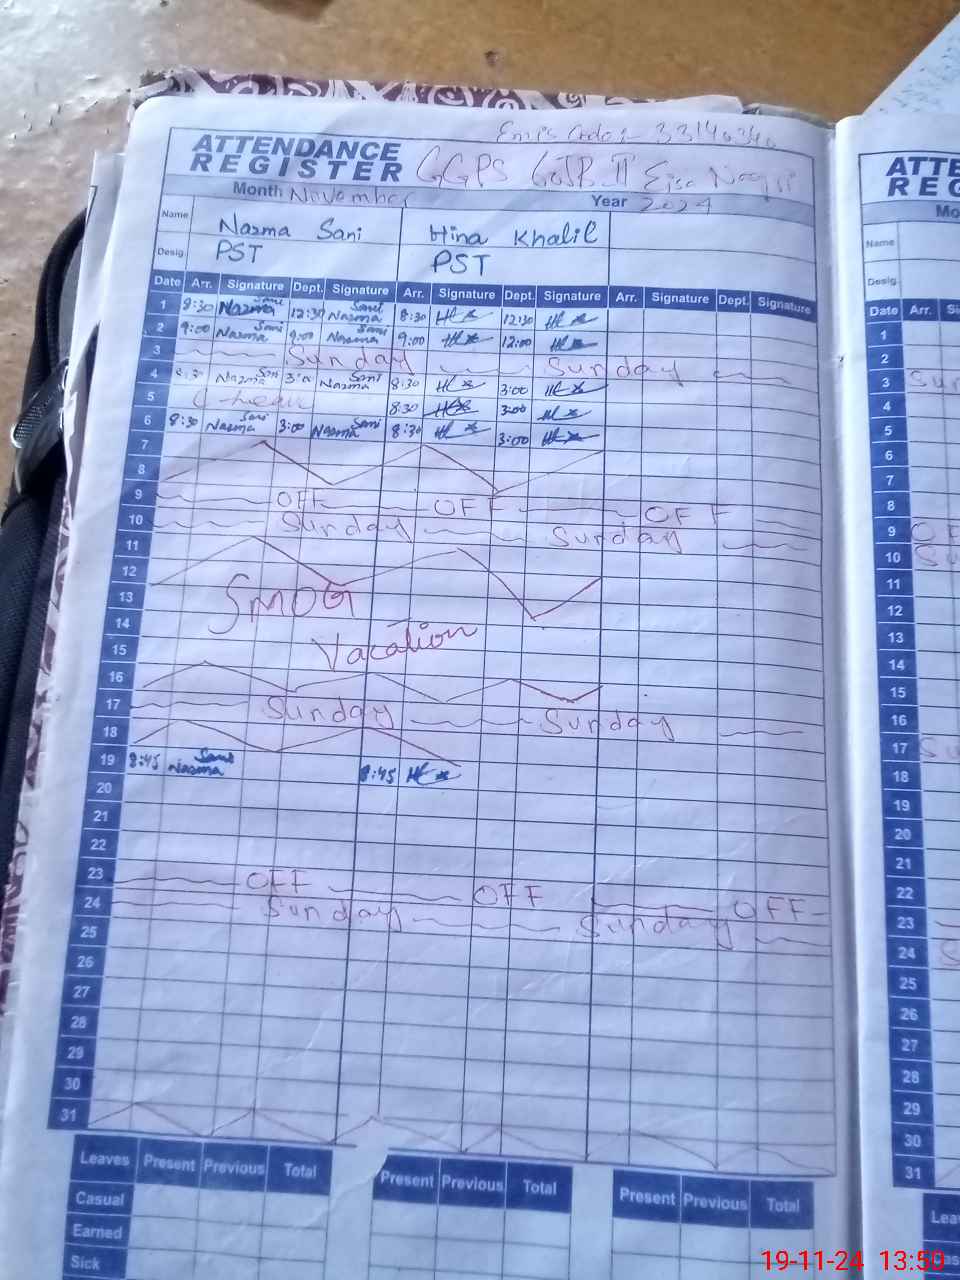 Emis Code: 33140340
ATTENDANCE REGISTER GGPS
Month November Year 2024
Name Nazma Sani Hina Khalil
Desig. PST PST
Date Arr. Signature Dept. Signature Arr. Signature Dept. Signature Arr. Signature Dept. Signature
1 8:30 Nazma Sani 12:30 Nazma Sani 8:30 12:30
2 9:00 Nazma Sani Nazma Sani 9:00 12:00
3 Sunday Sunday
4 8:30 Nazma Sani 3:00 Nazma Sani 8:30 3:00
5 8:30 3:00
6 8:30 Nazma Sani 3:00 Nazma Sani 8:30 3:00
7
8
9 OFF OFF OFF
10 Sunday Sunday
11
12
13 SMOG
14
15 Vacation
16
17 Sunday Sunday
18
19 8:45 Nazma Sani 8:45
20
21
22
23 OFF OFF OFF
24 Sunday Sunday
25
26
27
28
29
30
31
Leaves Present Previous Total Present Previous Total Present Previous Total
Casual
Earned
Sick
ATTE
REG
Mo
Name
Desig.
Date Arr.
1
2
3 Sun
4
5
6
7
8
9 OF
10 Su
11
12
13
14
15
16
17 Su
18
19
20
21
22
23
24 S
25
26
27
28
29
30
31
Lea
19-11-24 13:50